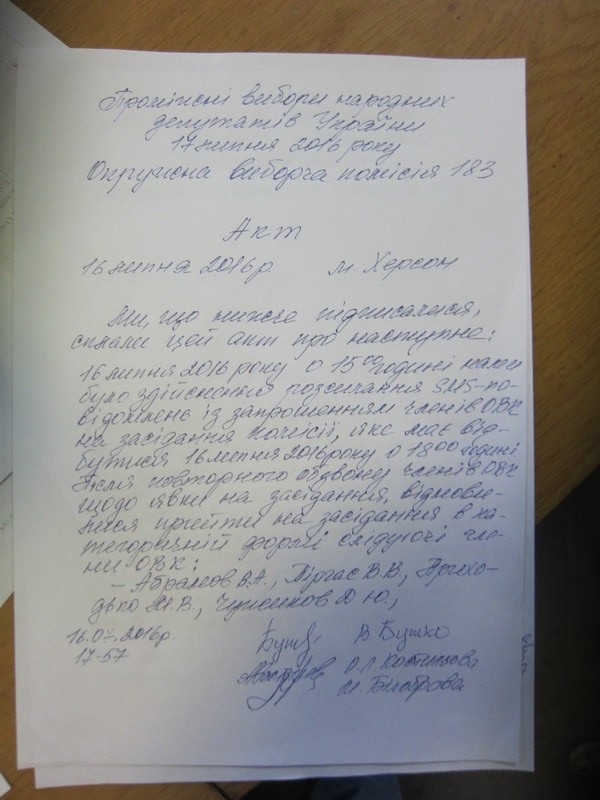 Проміжні вибори народних
депутатів України
17 липня 2016 року
Окружна виборча комісія 183
Акт
16 липня 2016 р. м. Херсон
Ми, що нижче підписалися,
склали цей акт про наступне:
16 липня 2016 року о 15 00 годині нами
було здійснено розсилання SMS-по-
відомлень із запрошенням членів ОВК
на засідання комісії, яке має від-
бутися 16 липня 2016 року о 18 00 годині.
Після повторного обдзвону членів ОВК
щодо явки на засідання, відмови-
лися прийти на засідання в ка-
тегоричній формі слідуючі чле-
ни ОВК:
– Абрамов В.А., Піргас В.В., Прихо-
дько М.В., Чумаков Д.Ю.,
16.07.2016р.
17-57
В Бутко